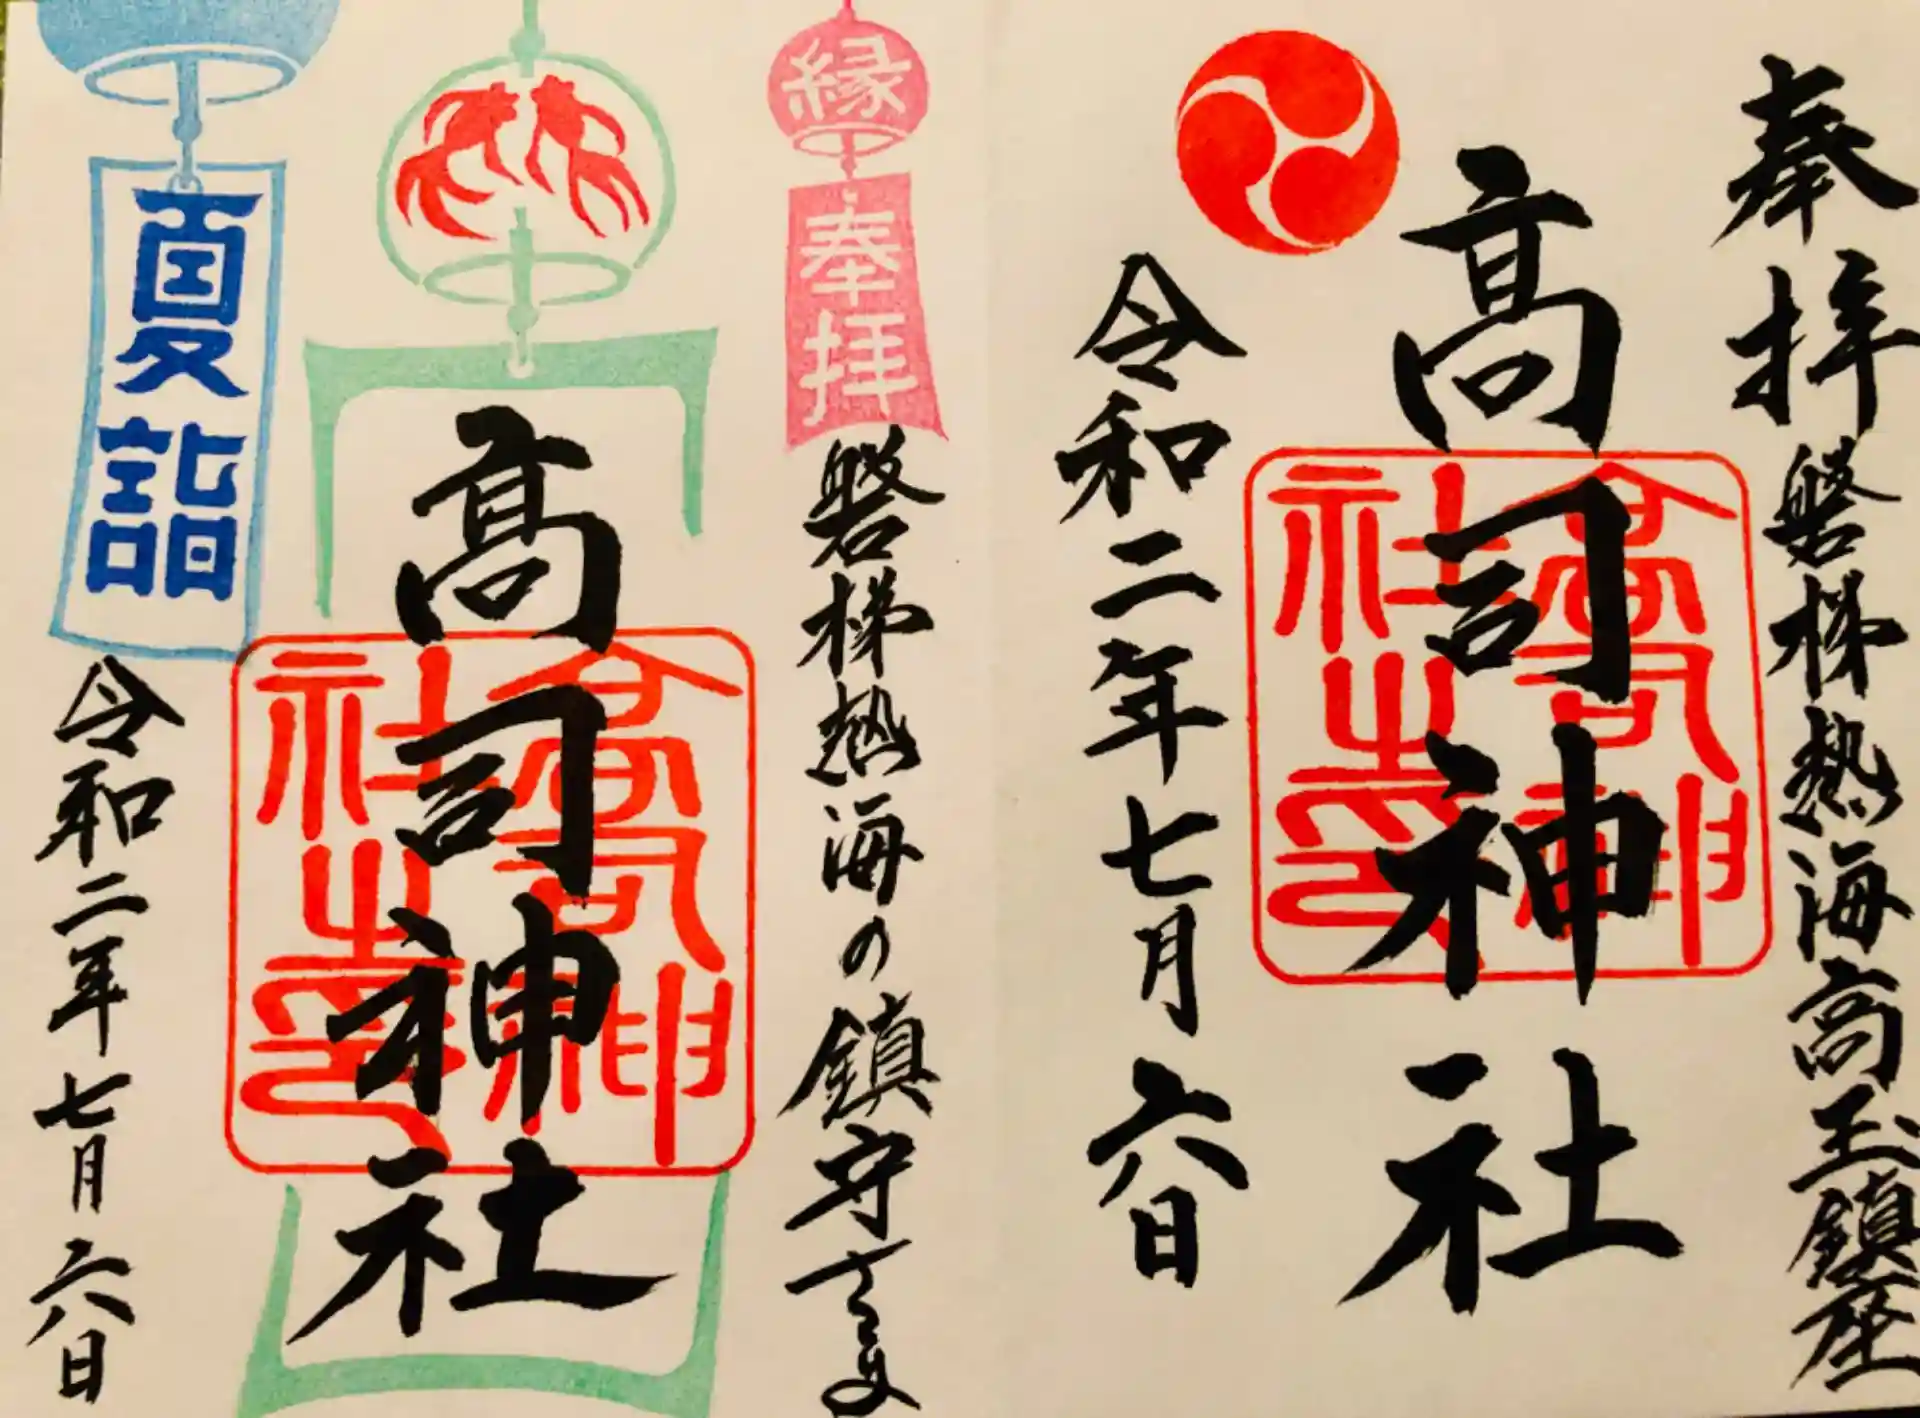 奉拝
磐梯熱海高玉鎮座
高司神社
高司神社之印
令和二年七月六日
縁
奉拝
磐梯熱海の鎮守さま
高司神社
高司神社之印
夏詣
令和二年七月六日